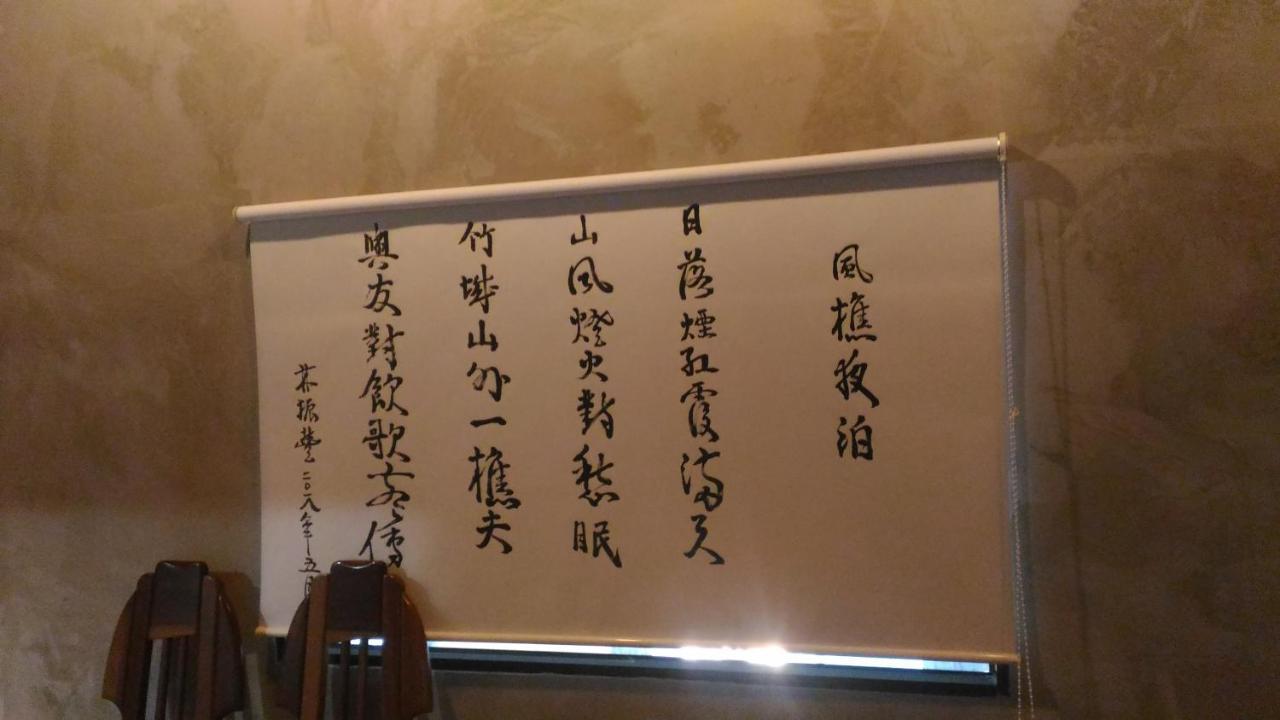 風樵夜泊
日落煙紅霞滿天
山風燈火對愁眠
竹城山外一樵夫
與友對飲歌
振豐二〇一八年五月